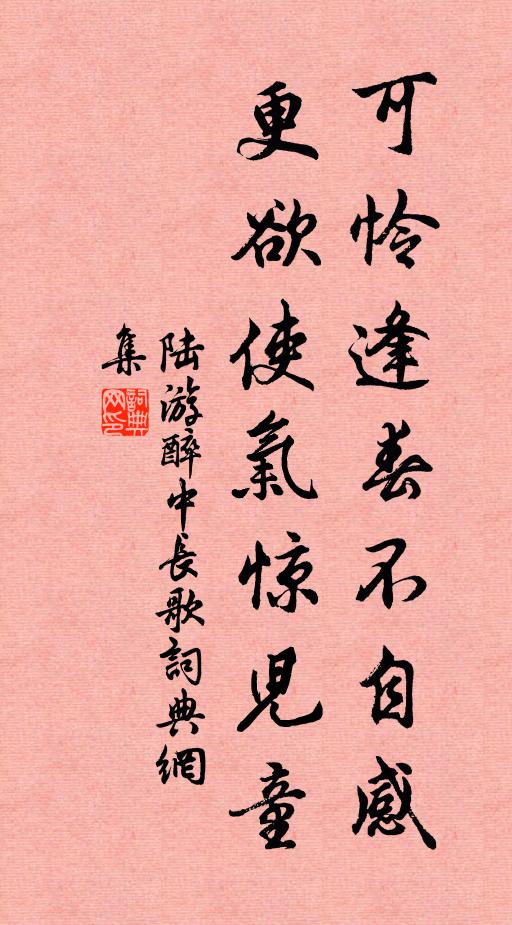 可怜逢春不自感
更欲使氣惊兒童
陆游醉中長歌詞典網
集
詞典网印